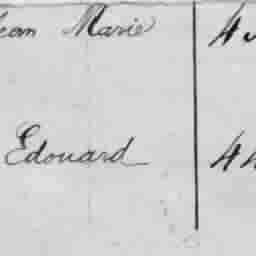 Jean Marie 4
Edouard 44